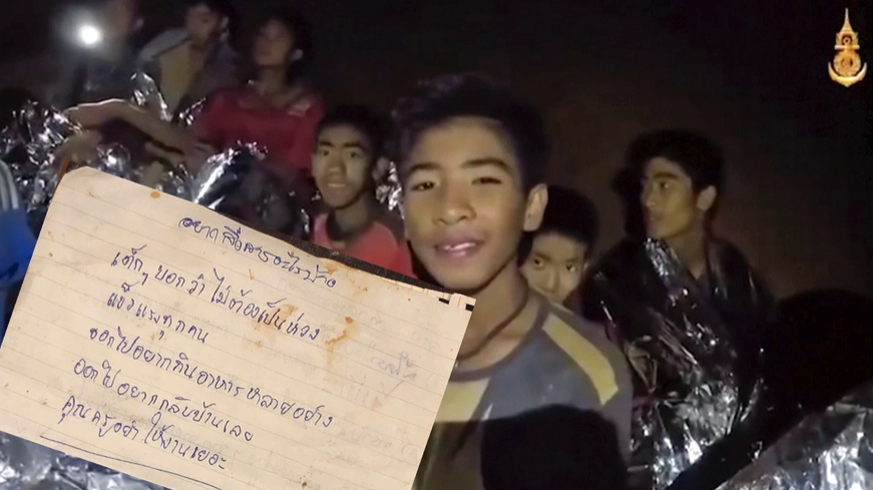 อยากสื่อสารอะไรบ้าง
เด็กๆ บอกว่า ไม่ต้องเป็นห่วง
แข็งแรงทุกคน
ออกไปอยากกินอาหารหลายอย่าง
ออกไปอยากกลับบ้านเลย
คุณครูอย่าให้งานเยอะ